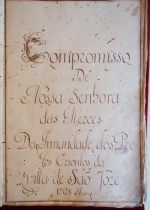 Compromisso
De
Nossa Senhora
das Merces
Da Irmandade dos Pre
tos Crioulos da
Villa de São Joze